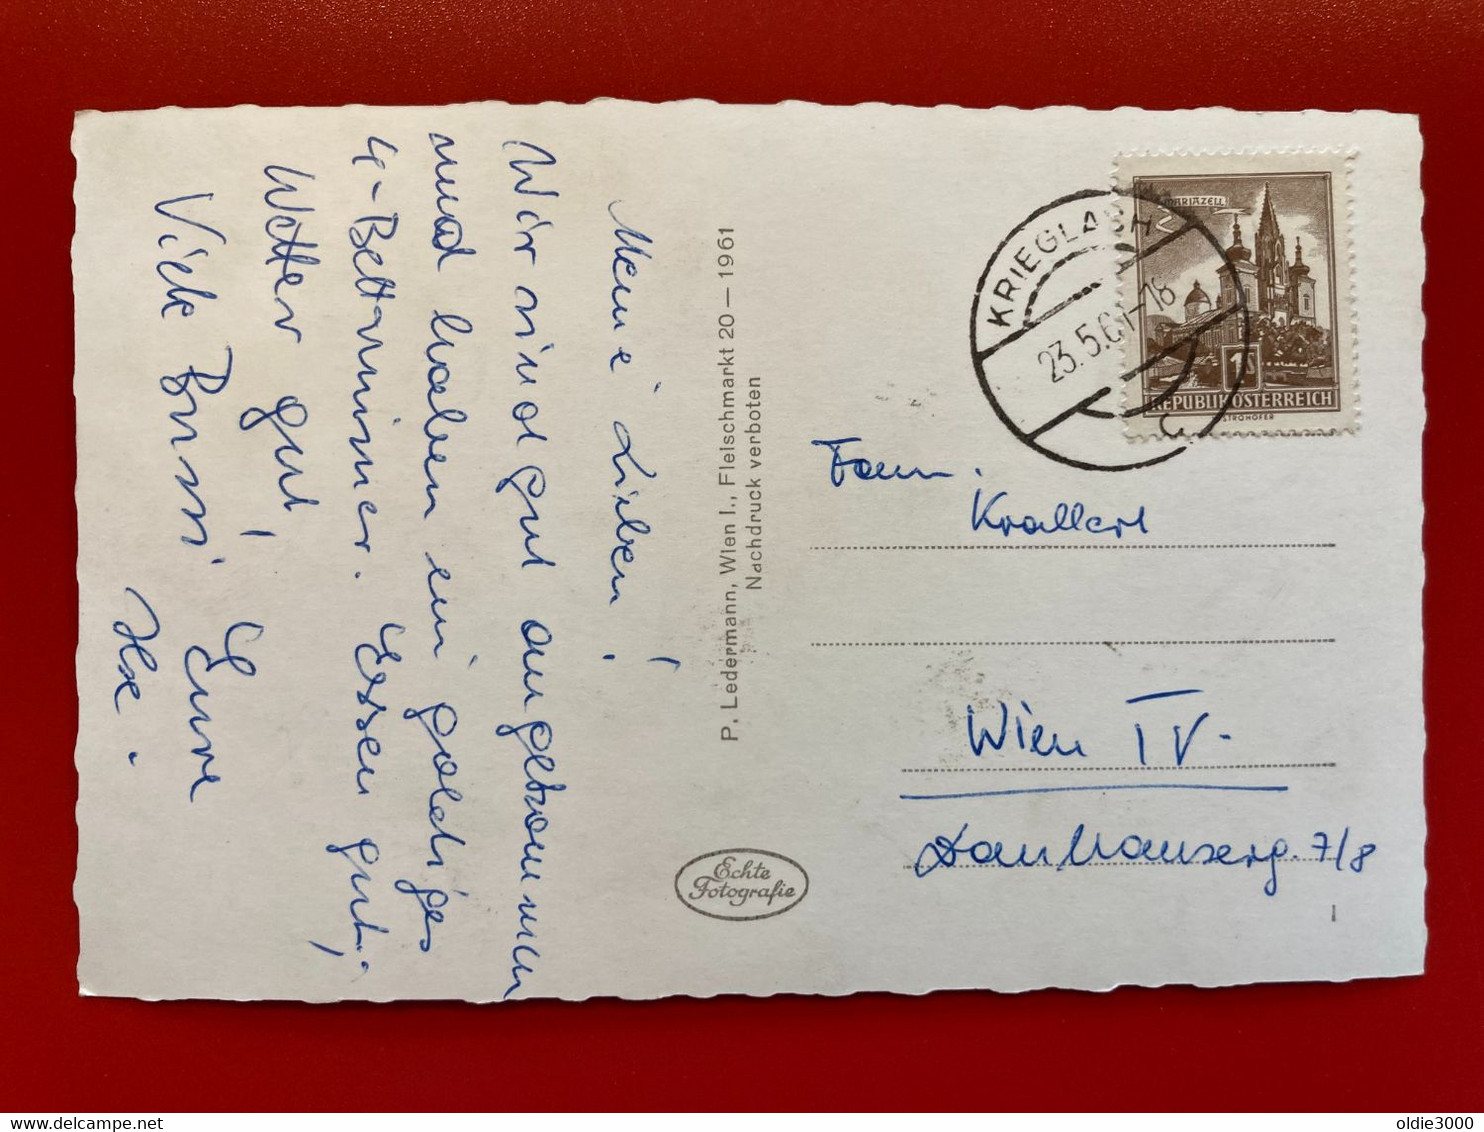 Meine Lieben!
Wir sind gut angekommen
und haben ein goldiges
4-Bettzimmer. Essen gut,
Wetter gut,
Viele Bussi Eure
Ilse.
P. Ledermann, Wien I., Fleischmarkt 20 – 1961
Nachdruck verboten
Echte
Fotografie
KRIEGLACH
23.5.61-18
c
MARIAZELL
1S
REPUBLIK ÖSTERREICH
STROHOFER
Fam.
Krallert
Wien IV.
Danhauserg. 7/8
oldie3000